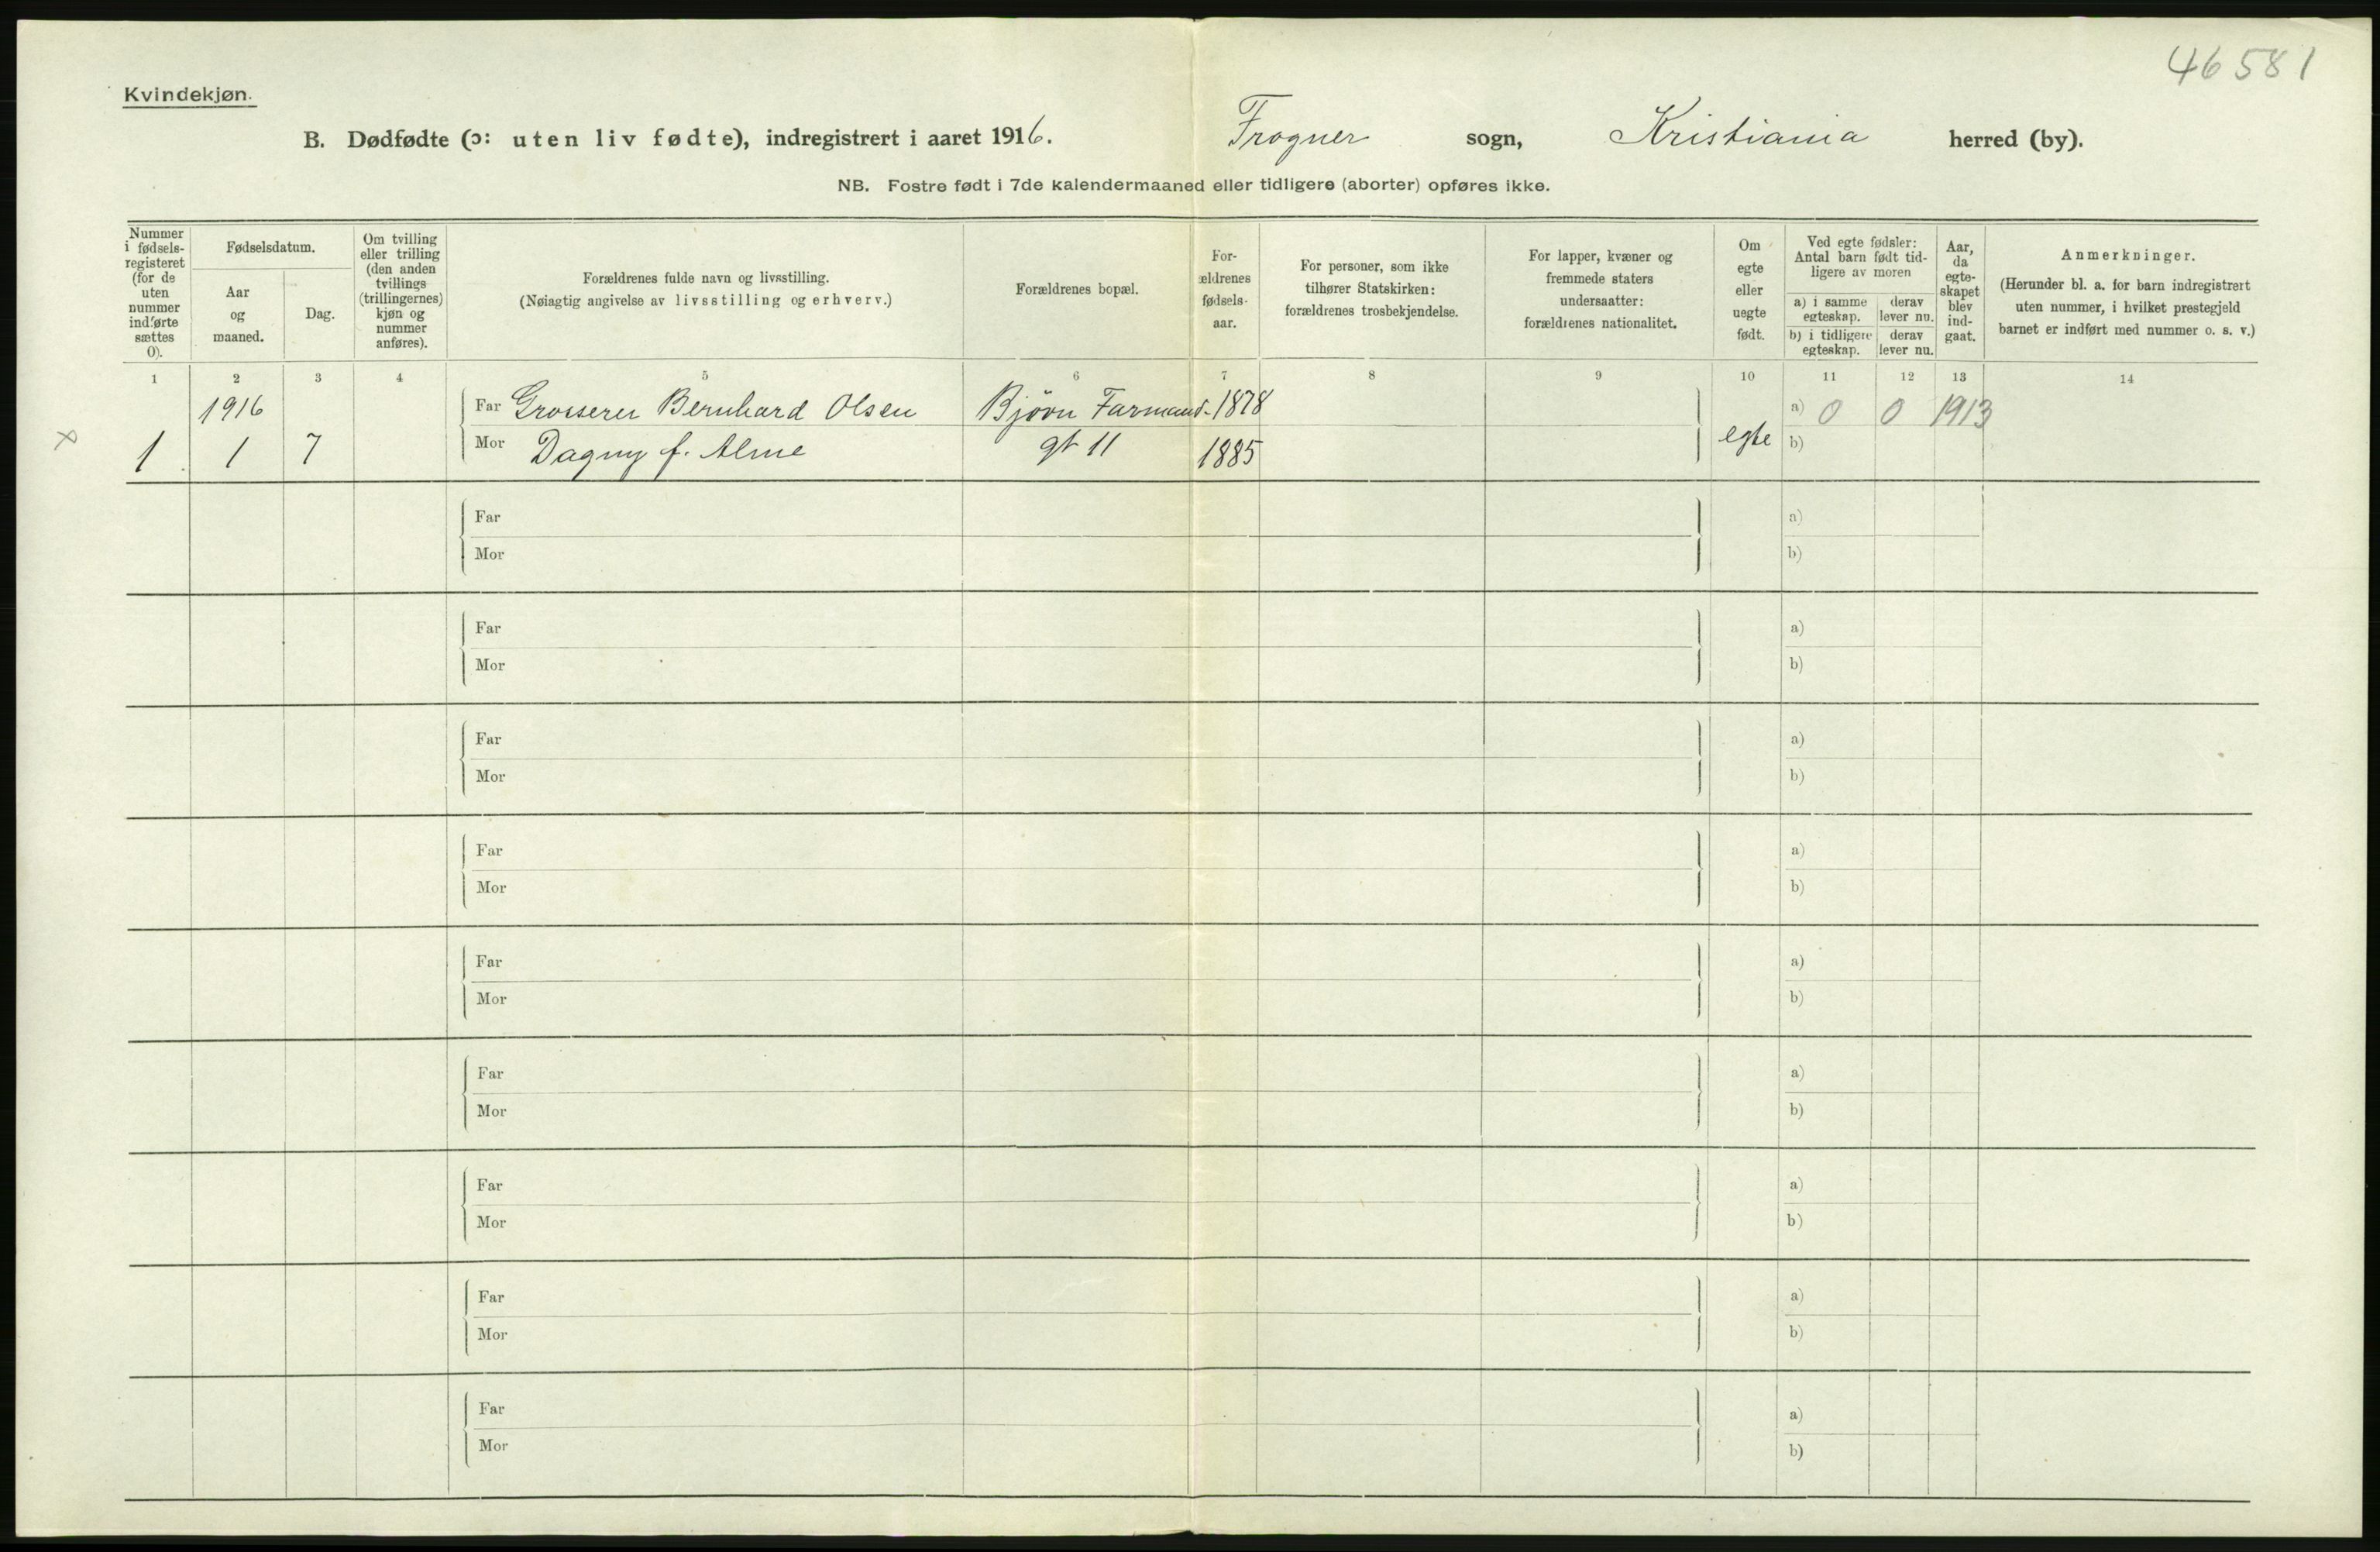 46581
Kvindekjøn.
B. Dødfødte (ɔ: uten liv fødte), indregistrert i aaret 1916. Frogner sogn, Kristiania herred (by).
NB. Fostre født i 7de kalendermaaned eller tidligere (aborter) opføres ikke.
Nummer i fødsels-registeret (for de uten nummer indførte sættes 0).
Fødselsdatum.
Aar og maaned.
Dag.
Om tvilling eller trilling (den anden tvillings (trillingernes) kjøn og nummer anføres).
Forældrenes fulde navn og livsstilling.
(Nøiagtig angivelse av livsstilling og erhverv.)
Forældrenes bopæl.
For-ældrenes fødsels-aar.
For personer, som ikke tilhører Statskirken: forældrenes trosbekjendelse.
For lapper, kvæner og fremmede staters undersaatter: forældrenes nationalitet.
Om egte eller uegte født.
Ved egte fødsler: Antal barn født tid-ligere av moren
a) i samme egteskap.
derav lever nu.
b) i tidligere egteskap.
derav lever nu.
Aar, da egte-skapet blev ind-gaat.
Anmerkninger.
(Herunder bl. a. for barn indregistrert uten nummer, i hvilket prestegjeld barnet er indført med nummer o. s. v.)
1 2 3 4 5 6 7 8 9 10 11 12 13 14
1916 Far Grosserer Bernhard Olsen Bjørn Farmand- 1878 a) 0 0 1913
x 1 1 7 Mor Dagny f. Alme gt 11 1885 egte b)
Far a)
Mor b)
Far a)
Mor b)
Far a)
Mor b)
Far a)
Mor b)
Far a)
Mor b)
Far a)
Mor b)
Far a)
Mor b)
Far a)
Mor b)
Far a)
Mor b)